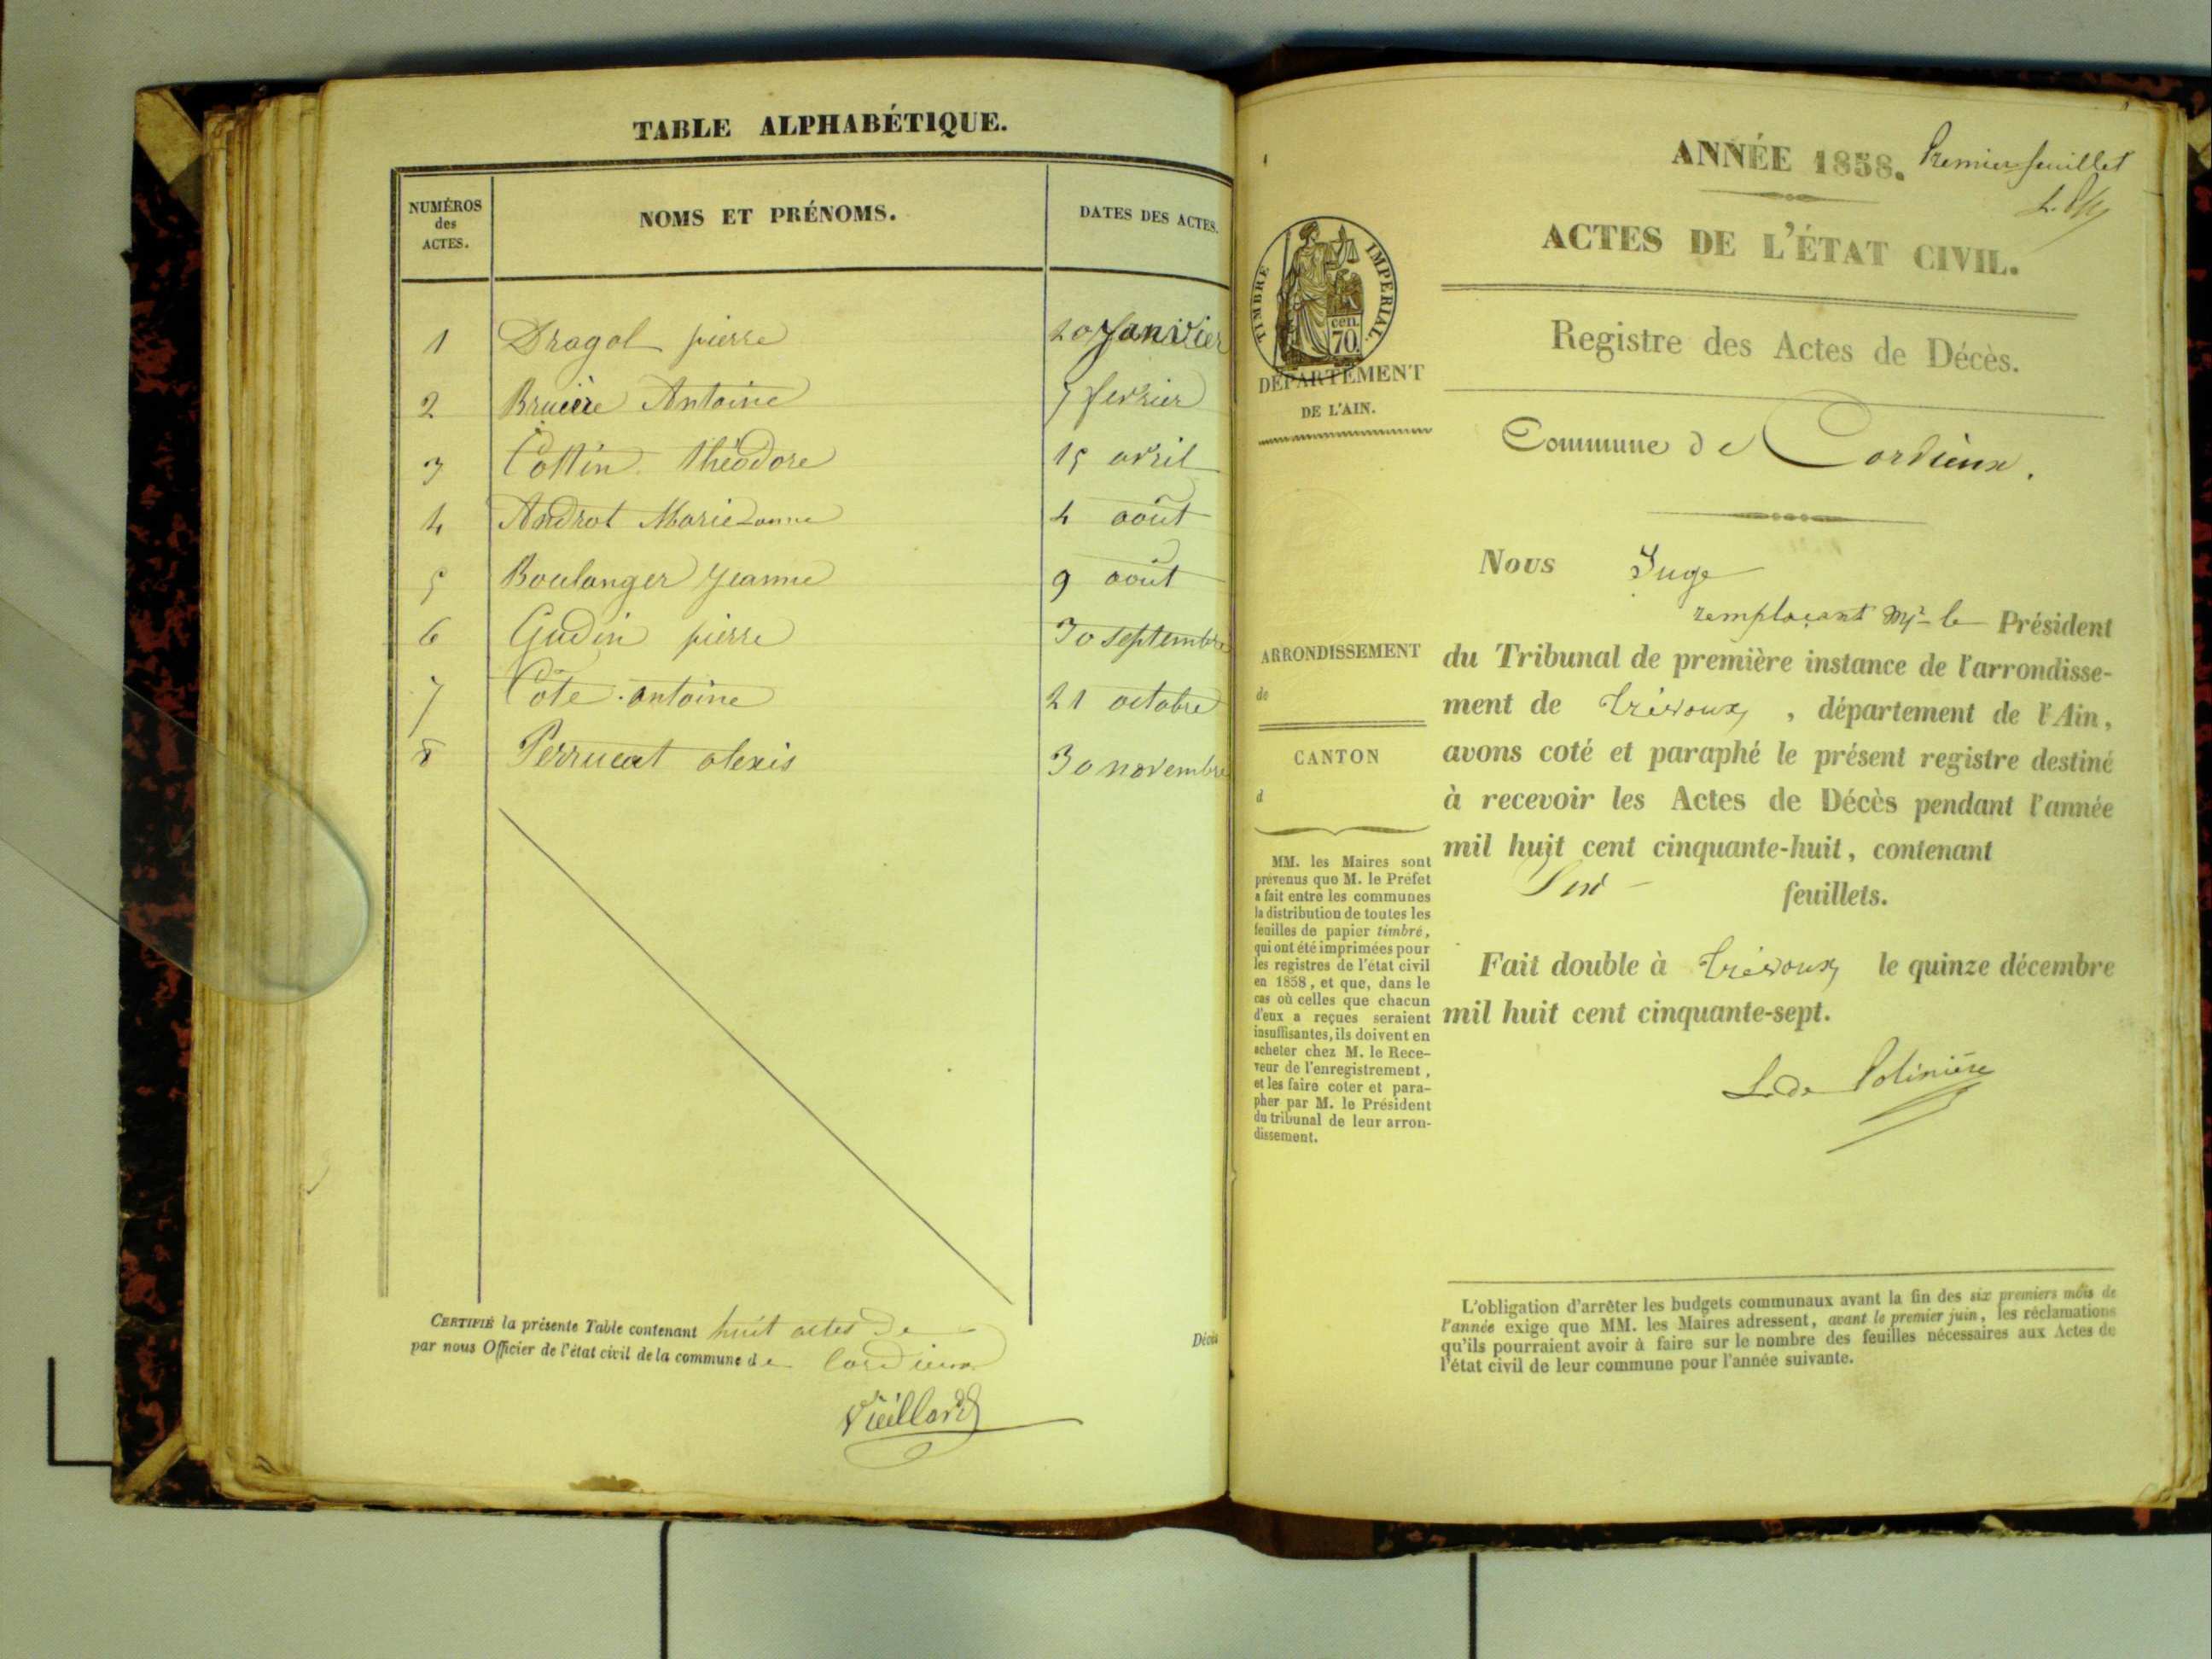 TABLE ALPHABÉTIQUE.
NUMÉROS
des
ACTES.
NOMS ET PRÉNOMS.
DATES DES ACTES.
1 Dragol pierre 20 Janvier
2 Bruière Antoine 7 fevrier
3 Cottin théodore 15 avril
4 Androt Marie 4 août
5 Boulanger Jeanne 9 août
6 Gudin pierre 30 septembre
7 Côte antoine 21 octobre
8 Perrucat alexis 30 novembre
CERTIFIÉ la présente Table contenant huit actes de Décès
par nous Officier de l'état civil de la commune de Cordieux
Vieillard
ANNÉE 1858. Premier feuillet
ACTES DE L'ÉTAT CIVIL.
Registre des Actes de Décès.
TIMBRE IMPÉRIAL.
cen.
70.
DÉPARTEMENT
DE L'AIN.
Commune de Cordieux.
Nous Juge
remplaçant Mr le Président
du Tribunal de première instance de l'arrondisse-
ment de Trévoux, département de l'Ain,
avons coté et paraphé le présent registre destiné
à recevoir les Actes de Décès pendant l'année
mil huit cent cinquante-huit, contenant
feuillets.
Fait double à Trévoux le quinze décembre
mil huit cent cinquante-sept.
L. de Polinière
ARRONDISSEMENT
de
CANTON
d
MM. les Maires sont
prévenus que M. le Préfet
a fait entre les communes
la distribution de toutes les
feuilles de papier timbré,
qui ont été imprimées pour
les registres de l'état civil
en 1858, et que, dans le
cas où celles que chacun
d'eux a reçues seraient
insuffisantes, ils doivent en
acheter chez M. le Rece-
veur de l'enregistrement,
et les faire coter et para-
pher par M. le Président
du tribunal de leur arron-
dissement.
L'obligation d'arrêter les budgets communaux avant la fin des six premiers mois de
l'année exige que MM. les Maires adressent, avant le premier juin, les réclamations
qu'ils pourraient avoir à faire sur le nombre des feuilles nécessaires aux Actes de
l'état civil de leur commune pour l'année suivante.